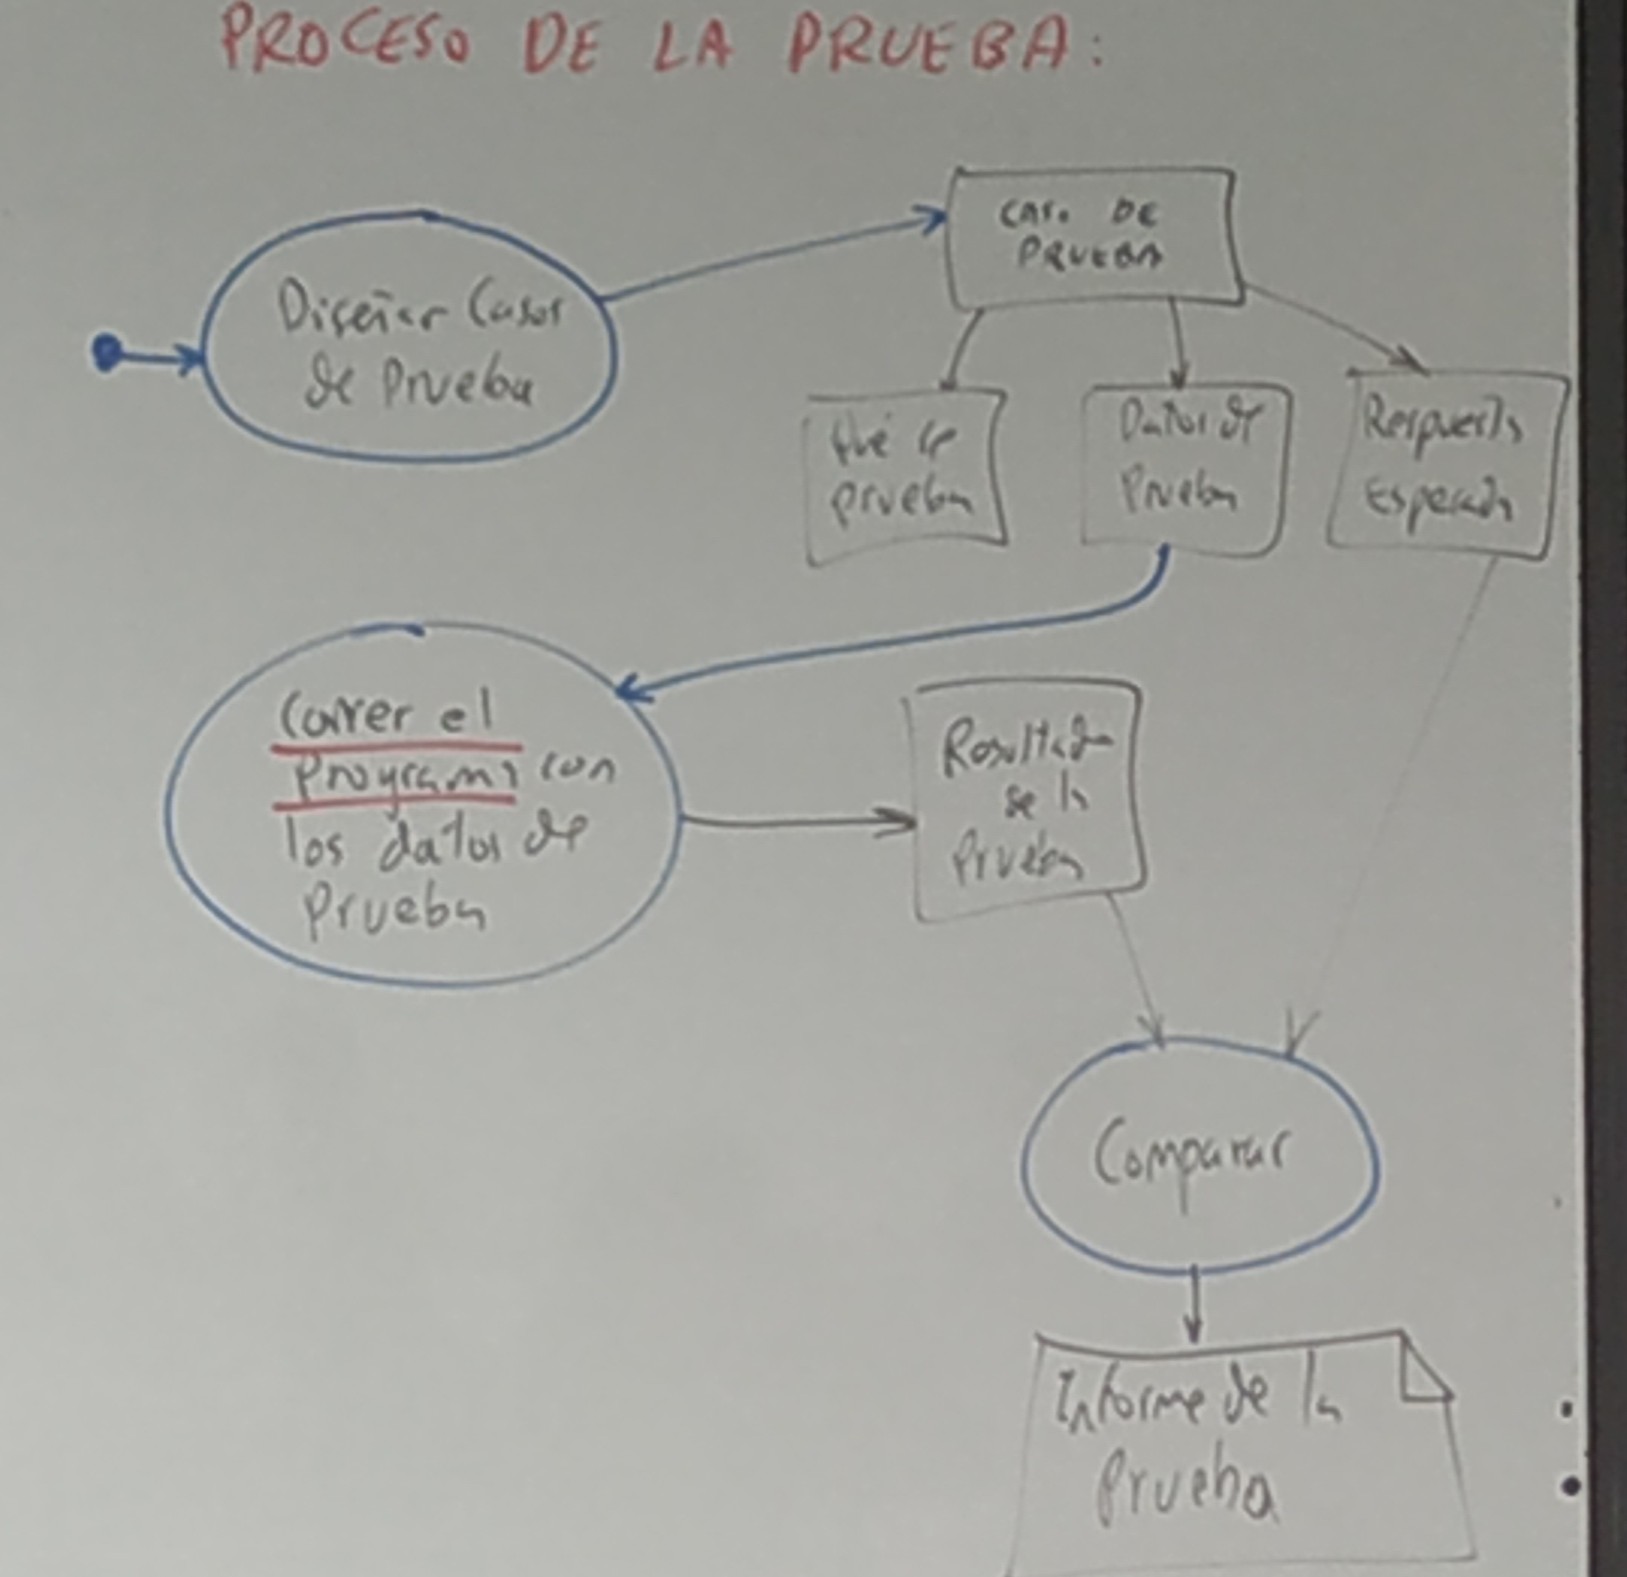 PROCESO DE LA PRUEBA:
CASO DE
PRUEBA
Diseñar Casos
de Prueba
Qué se
prueba
Datos de
Prueba
Respuesta
Esperada
Correr el
Programa con
los datos de
Prueba
Resultado
de la
Prueba
Comparar
Informe de la
Prueba